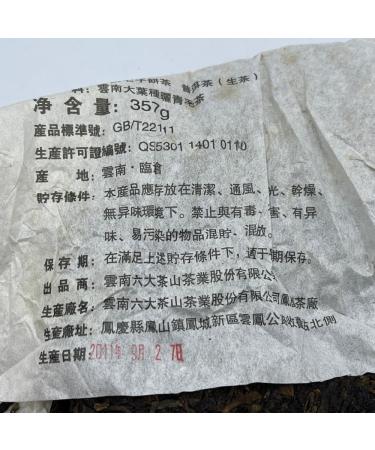 七子餅茶 普洱茶（生茶）
料：雲南大葉種曬青毛茶
净含量：357g
産品標準號：GB/T22111
生産許可證編號：QS5301 1401 0110
産 地：雲南·臨倉
貯存條件：本産品應存放在清潔、通風、光、幹燥、
無异味環境下。禁止與有毒、害、有异
味、易污染的物品混貯、混放。
保存期：在滿足上述貯存條件下，適于期保存。
出品商：雲南六大茶山茶業股份有限公
生産廠名：雲南六大茶山茶業股份有限公司鳳茶廠
生産廠址：鳳慶縣鳳山鎮鳳城新區雲鳳公收點北側
生産日期：2011年9月27日